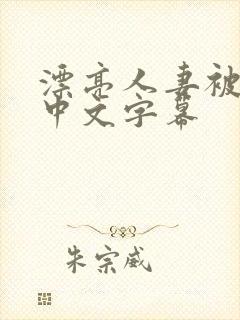 漂亮人妻被
中文字幕
朱宗威